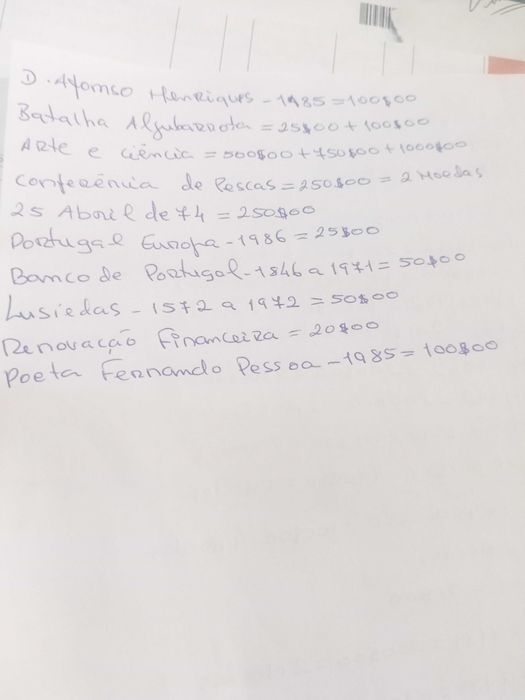 D. Afomso Henriques - 1985 = 100$00
Batalha Aljubarrota = 25$00 + 100$00
Arte e ciência = 500$00 + 750$00 + 1000$00
Conferência de Pescas = 250$00 = 2 Moedas
25 Abril de 74 = 250$00
Portugal Europa - 1986 = 25$00
Banco de Portugal - 1846 a 1971 = 50$00
Lusiedas - 1572 a 1972 = 50$00
Renovação Financeira = 20$00
Poeta Fernando Pessoa - 1985 = 100$00